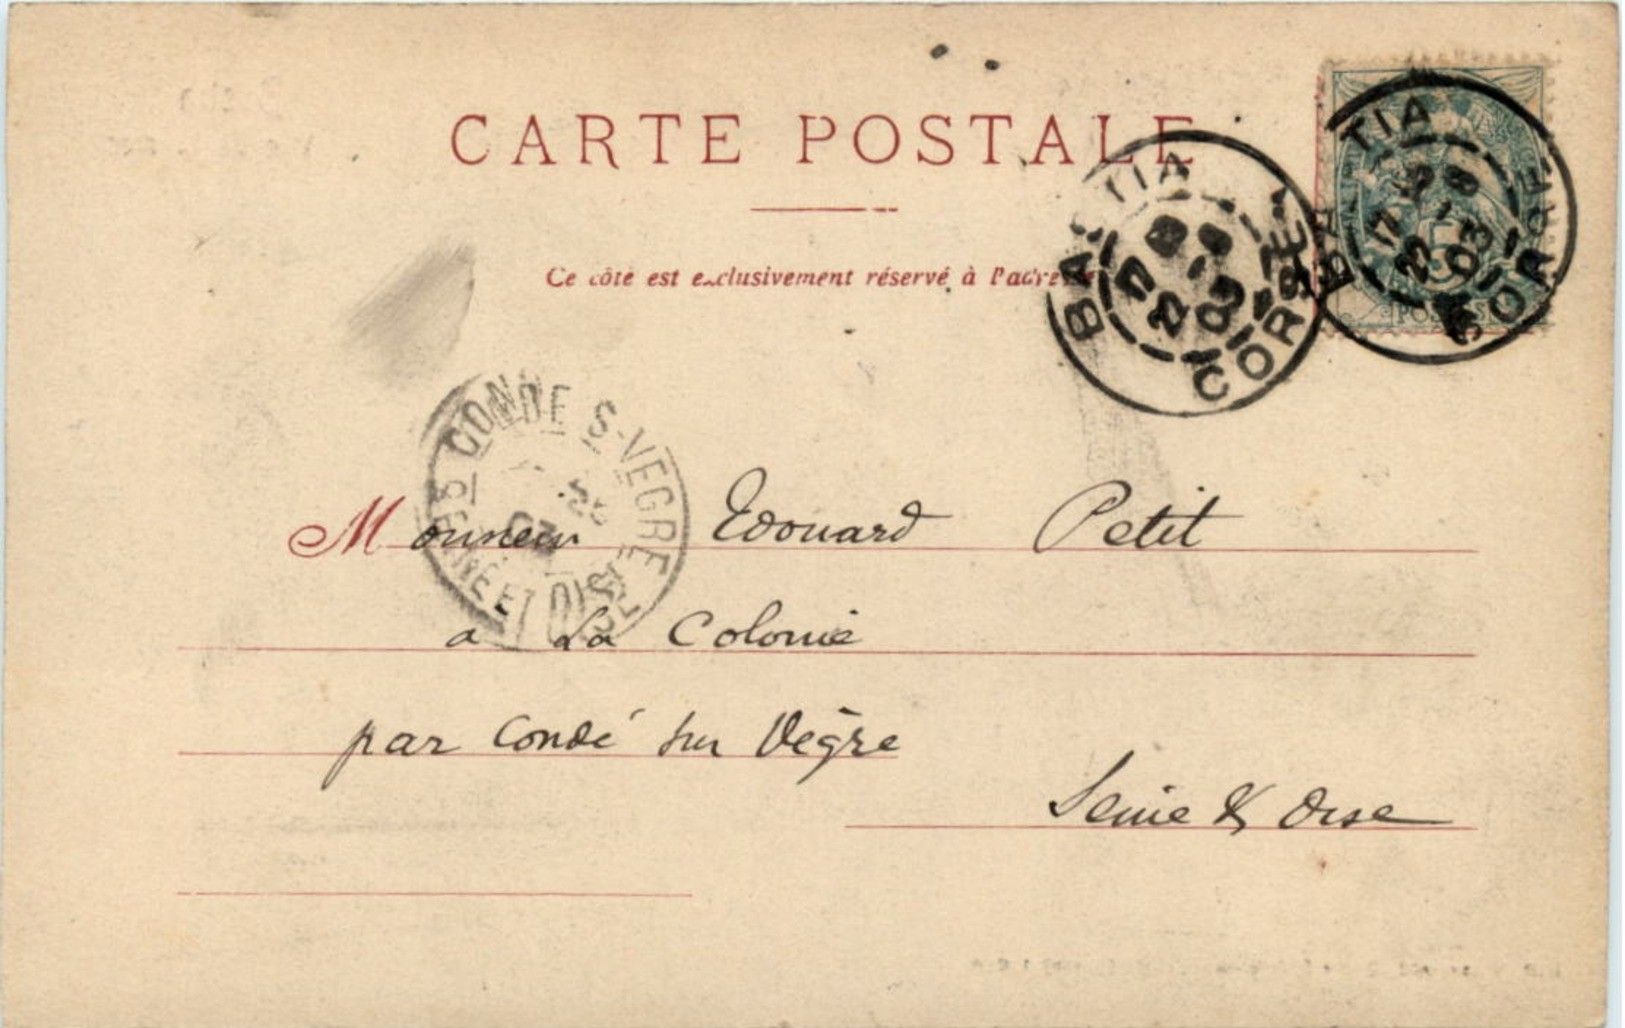 CARTE POSTALE
Ce côté est exclusivement réservé à l'adresse
BASTIA
22
03
CORSE
BASTIA
17
22
03
CORSE
POSTES
CONDE S-VEGRE
03
SEINE ET OISE
Monsieur Edouard Petit
a La Colonie
par Condé sur Vègre
Seine & Oise